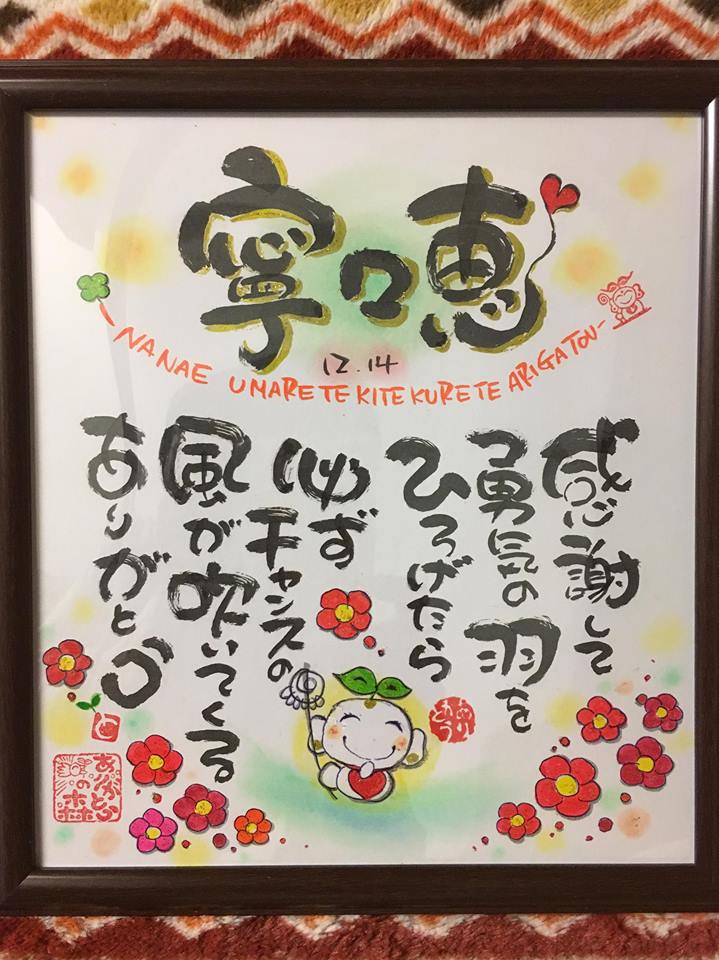 寧々恵
12.14
-NANAE UMARETEKITEKURETE ARIGATOU-
感謝して
勇気の羽を
ひろげたら
必ず
チャンスの
風が吹いてくる
ありがとう
ありがとうの森